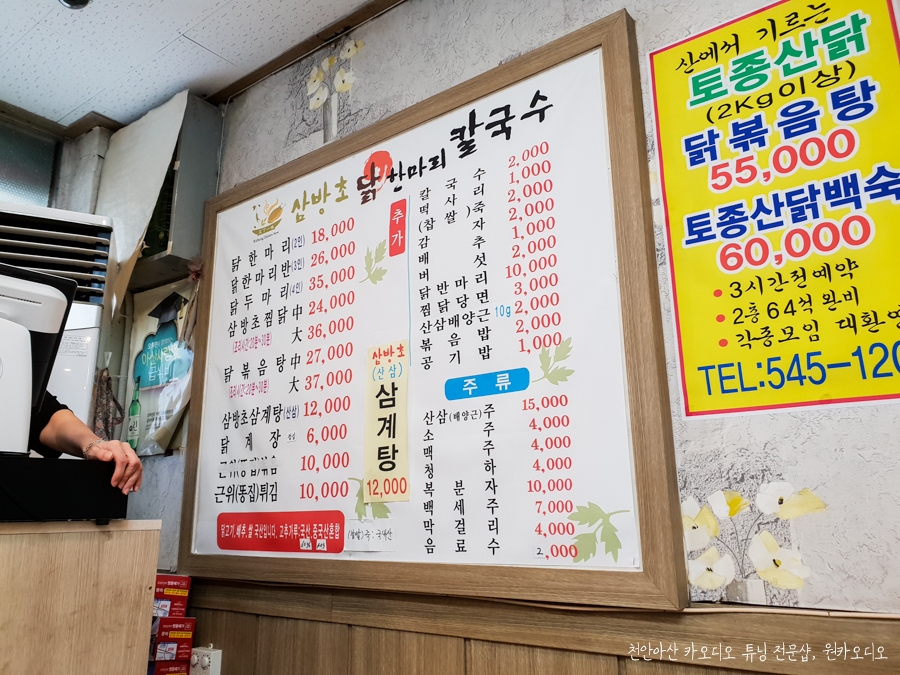 삼방초 닭한마리 칼국수
닭한마리(2인) 18,000
닭한마리반(3인) 26,000
닭두마리(4인) 35,000
삼방초찜닭 中 24,000
(조리시간:20분~30분) 大 36,000
닭볶음탕 中 27,000
(조리시간:20분~30분) 大 37,000
삼방초삼계탕(산삼) 12,000
닭계장 6,000
10,000
근위(똥집)튀김 10,000
닭고기,배추,쌀 국산입니다. 고추가루:국산,중국산혼합
삼방초
(산삼)
삼계탕
12,000
추가
칼국수 2,000
떡사리 1,000
(찹쌀)죽 2,000
감자 2,000
배추 1,000
버섯 2,000
닭반마리 10,000
찜닭당면 3,000
산삼배양근 10g 2,000
볶음밥 2,000
공기밥 1,000
주류
산삼(배양근)주 15,000
소주 4,000
맥주 4,000
청하 4,000
복분자 10,000
백세주 7,000
막걸리 4,000
음료수 2,000
산에서 기르는
토종산닭
(2Kg이상)
닭볶음탕
55,000
토종산닭백숙
60,000
• 3시간전예약
• 2층64석 완비
• 각종모임 대환영
TEL:545-120
천안아산 카오디오 튜닝 전문샵, 원카오디오